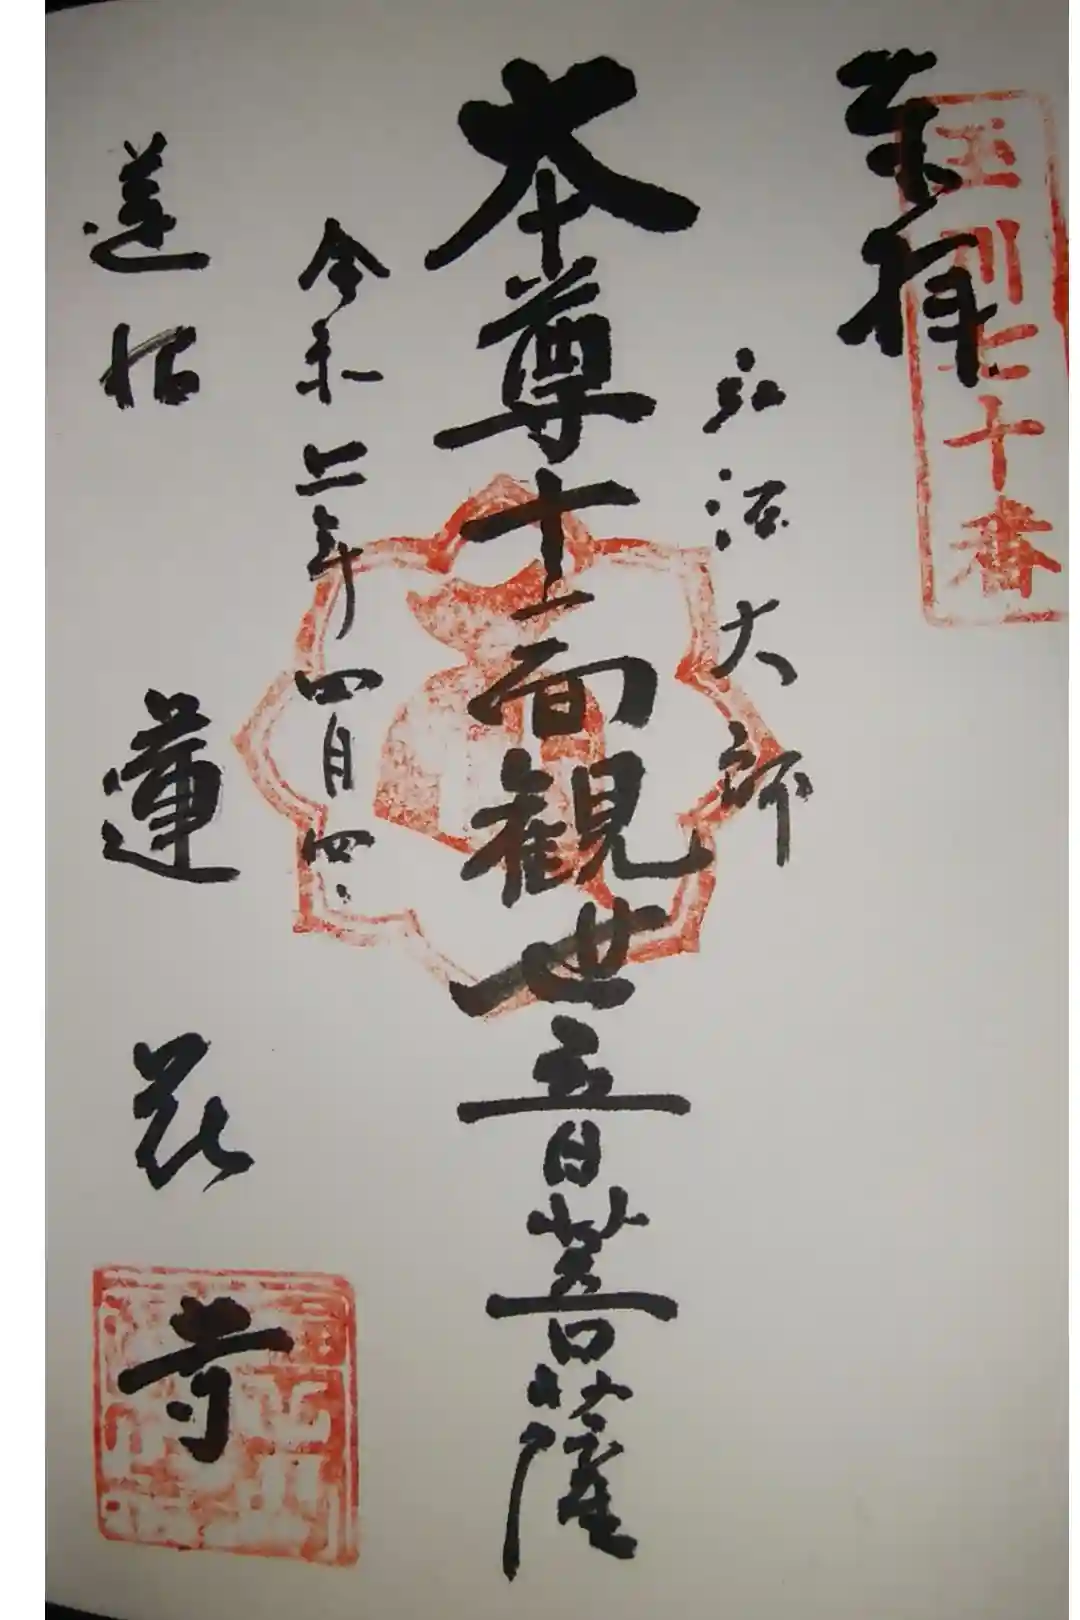 奉拝
玉川七十番
弘法大師
本尊十一面観世音菩薩
令和三年四月四日
蓮沼 蓮花寺